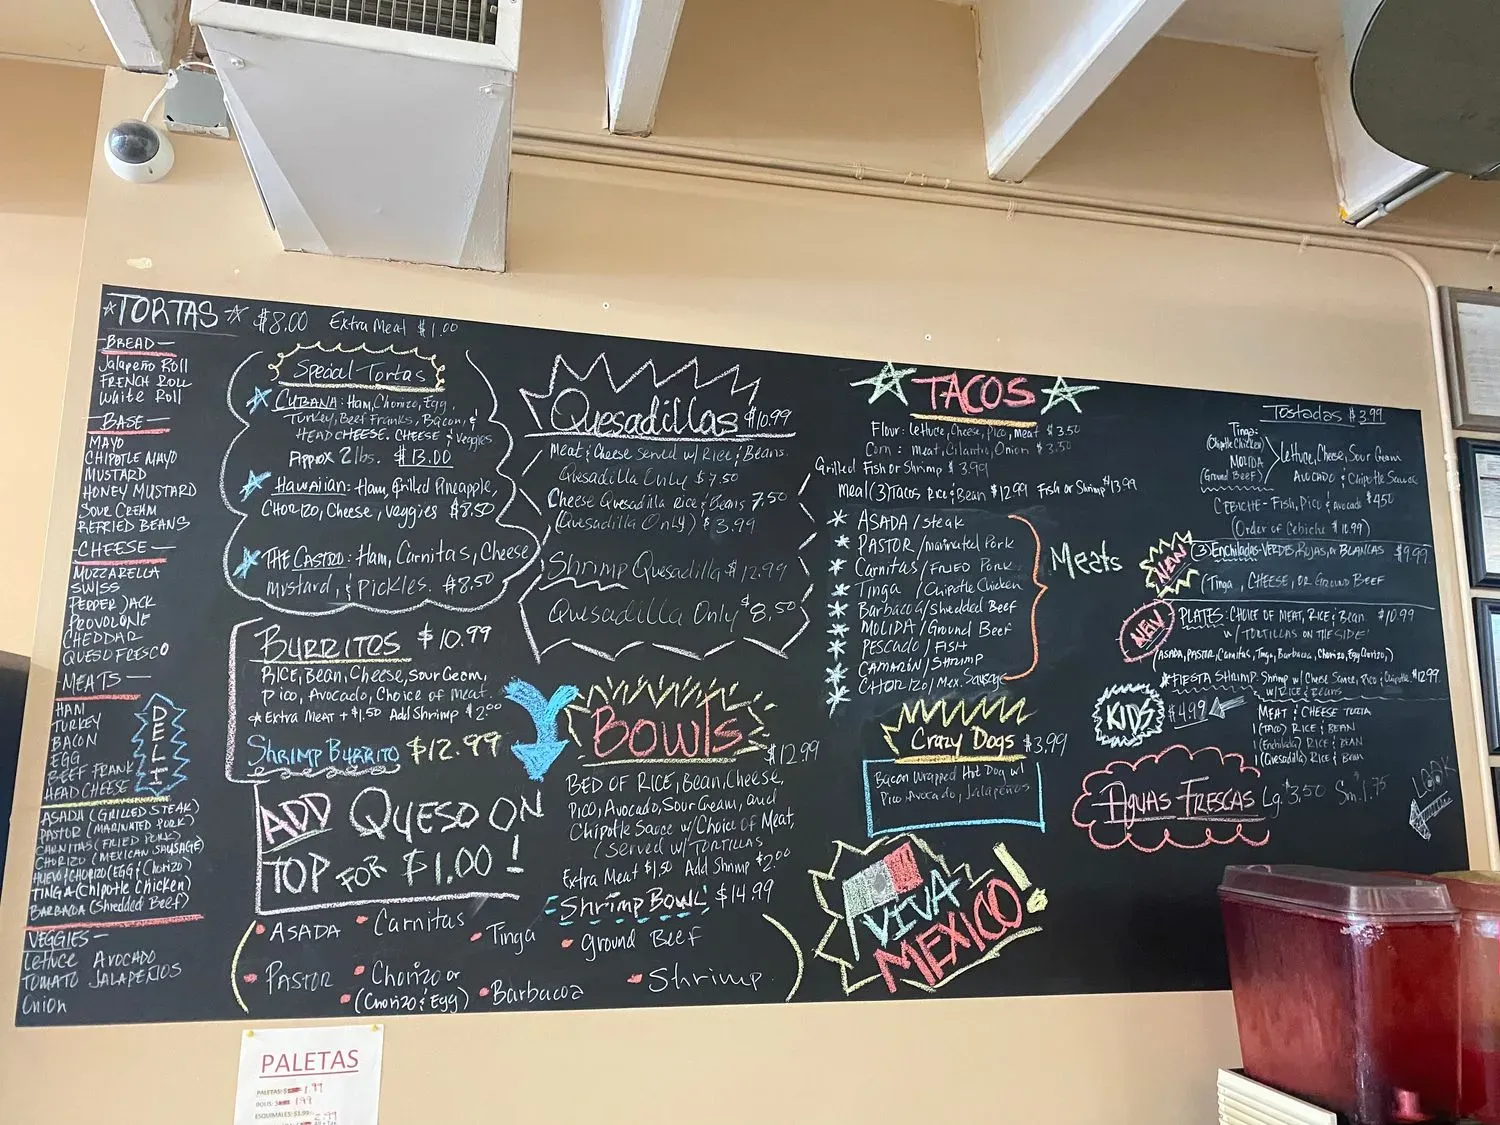 TORTAS $8.00 Extra Meat $1.00
BREAD—
Jalapeño Roll
FRENCH ROLL
White Roll
BASE—
MAYO
CHIPOTLE MAYO
MUSTARD
HONEY MUSTARD
SOUR CREAM
REFRIED BEANS
—CHEESE—
MOZZARELLA
SWISS
PEPPER JACK
PROVOLONE
CHEDDAR
QUESO FRESCO
—MEATS—
HAM
TURKEY
BACON
EGG
BEEF FRANK
HEAD CHEESE
DELI
ASADA (GRILLED STEAK)
PASTOR (MARINATED PORK)
CARNITAS (FRIED PORK)
CHORIZO (MEXICAN SAUSAGE)
HUEVO & CHORIZO (EGG & Chorizo)
TINGA (Chipotle Chicken)
BARBACOA (Shredded Beef)
VEGGIES—
Lettuce AVOCADO
TOMATO JALAPEÑOS
Onion
Special Tortas
CUBANA: Ham, Chorizo, Egg,
Turkey, Beef Franks, Bacon, &
HEADCHEESE. CHEESE & Veggies
Approx 2 lbs. $13.00
HAWAIIAN: Ham, Grilled Pineapple,
CHORIZO, Cheese, Veggies $8.50
THE CASTRO: Ham, Carnitas, Cheese
Mustard, & Pickles. $8.50
BURRITOS $10.99
RICE, Bean, Cheese, Sour Cream,
Pico, Avocado, Choice of Meat.
Extra Meat + $1.50 Add Shrimp $2.00
Shrimp Burrito $12.99
ADD QUESO ON
TOP FOR $1.00!
Quesadillas $10.99
Meat & Cheese Served w/ Rice & Beans.
Quesadilla Only $7.50
Cheese Quesadilla Rice & Beans 7.50
(Quesadilla Only) $3.99
Shrimp Quesadilla $12.99
Quesadilla Only $8.50
BOWLS $12.99
BED OF RICE, Bean, Cheese,
Pico, Avocado, Sour Cream, and
Chipotle Sauce w/ Choice of Meat,
(Served w/ TORTILLAS
Extra Meat $1.50 Add Shrimp $2.00
Shrimp Bowl $14.99
ASADA Carnitas Tinga Ground Beef
PASTOR Chorizo or Barbacoa Shrimp
(Chorizo & Egg)
TACOS
Flour: Lettuce, Cheese, Pico, Meat $3.50
Corn: Meat, Cilantro, Onion $3.50
Grilled Fish or Shrimp $3.99
Meal (3) Tacos Rice & Bean $12.99 Fish or Shrimp $13.99
ASADA / Steak
PASTOR / Marinated Pork
Carnitas / FRIED Pork
Tinga / Chipotle Chicken
Barbacoa / Shredded Beef
MOLIDA / Ground Beef
PESCADO / FISH
CAMARÓN / SHRIMP
CHORIZO / Mex. Sausage
Meats
Crazy Dogs $3.99
Bacon Wrapped Hot Dog w/
Pico, Avocado, Jalapeños
VIVA
MEXICO!
Tostadas $3.99
Tinga:
(Chipotle Chicken)
MOLIDA
(Ground Beef)
Lettuce, Cheese, Sour Cream
AVOCADO & Chipotle Sauce
CEBICHE - Fish, Pico & Avocado $4.50
(Order of Cebiche $10.99)
NEW (3) Enchiladas-VERDES, ROJAS, or BLANCAS $9.99
(Tinga, CHEESE, OR GROUND BEEF
NEW PLATES: CHOICE OF MEAT, RICE & Bean. $10.99
w/ TORTILLAS ON THE SIDE!
(ASADA, PASTOR, Carnitas, Tinga, Barbacoa, Chorizo, Egg Chorizo,)
FIESTA SHRIMP: Shrimp w/ Cheese Sauce, Pico & Chipotle $12.99
w/ RICE & BEANS
KIDS $4.99
MEAT & CHEESE TORTA
1 (Taco) RICE & BEAN
1 (Enchilada) RICE & BEAN
1 (Quesadilla) RICE & Bean
AGUAS FRESCAS Lg. $3.50 Sm. 1.75
LOOK
PALETAS
PALETAS: $ 1.99
BOLIS: $ 1.99
ESQUIMALES: $1.99